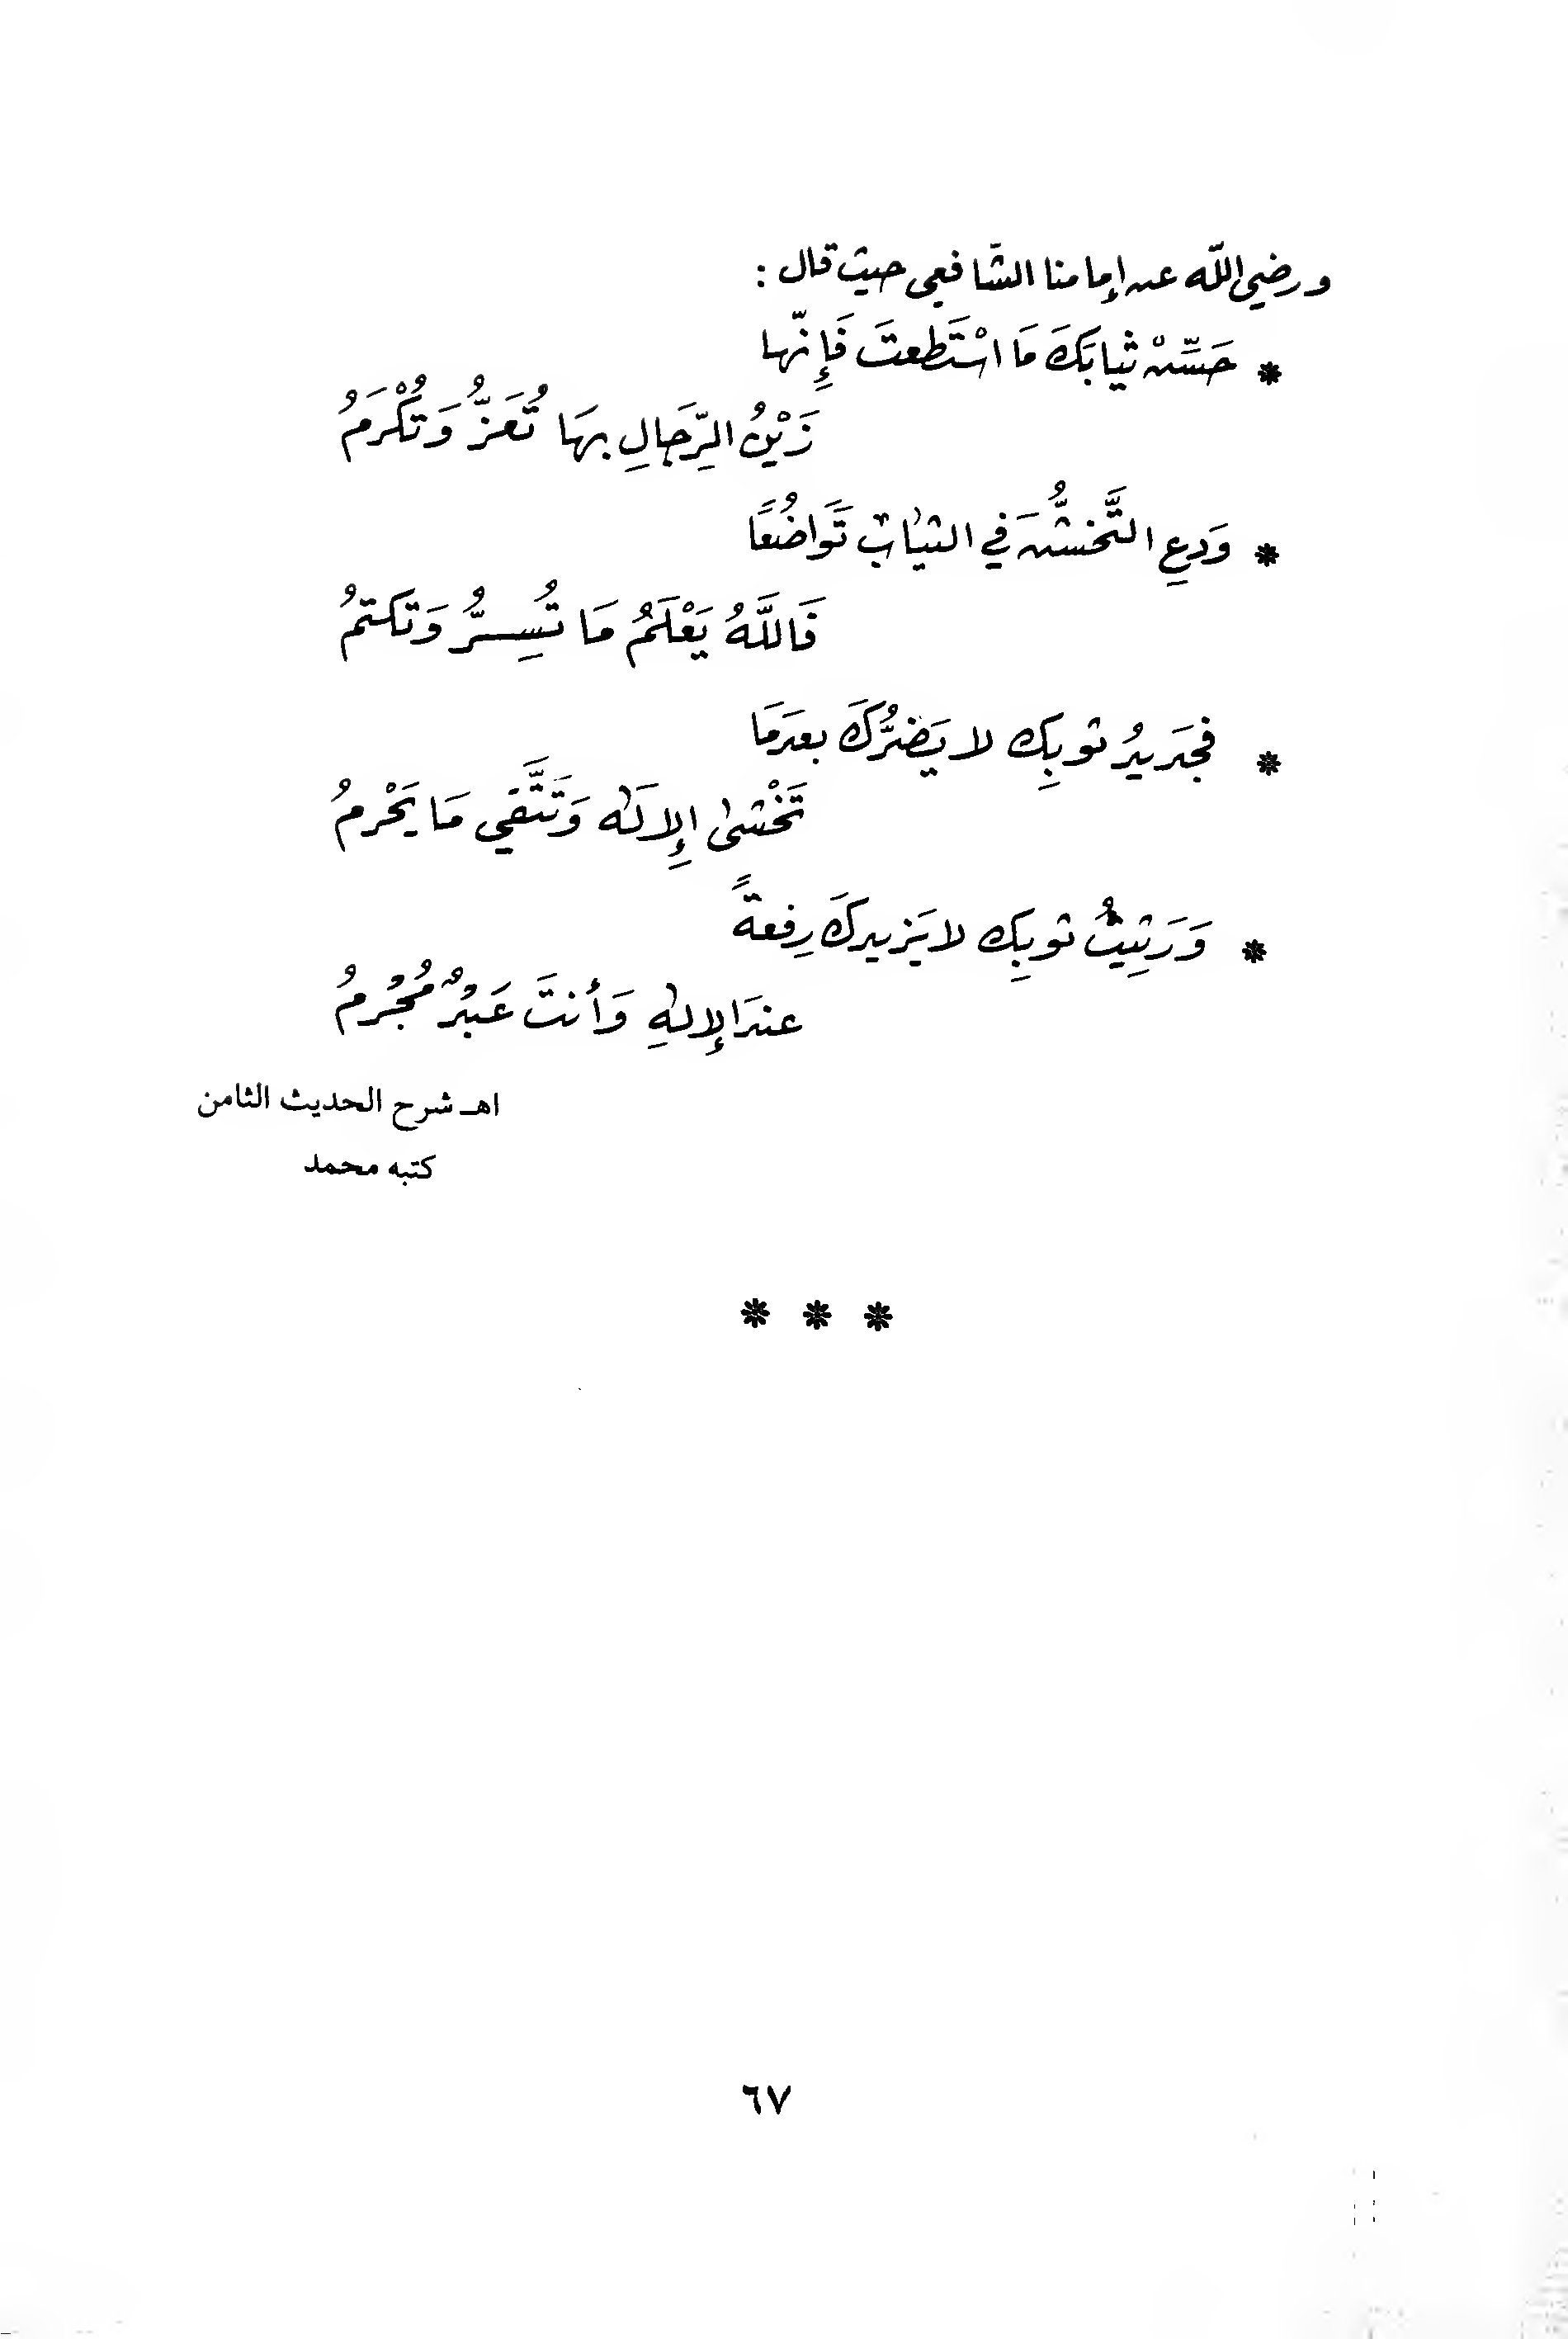 ورضي اللّه عن إمامنا الشّافعي حيث قال :
* حَسِّنْ ثيابَكَ مَا اسْتَطعتَ فَإِنّها
زَيْنُ الرِّجَالِ بهَا تُعَزُّ وَتُكْرَمُ
* وَدعِ التَّخشُّنَ في الثيابِ تَوَاضُعًا
فَاللَّهُ يَعْلَمُ مَا تُسِرُّ وَتكتمُ
* فجَديدُ ثوبِك لا يَضرُّكَ بعدَمَا
تَخْشىٰ الإِلَٰه وَتَتَّقي مَا يَحْرمُ
* وَرَثِيثُ ثوبِك لا يَزيدكَ رِفعةً
عندَ الإلٰهِ وَأنتَ عَبدٌ مُجْرمُ
اهـ شرح الحديث الثامن
كتبه محمد
* * *
٦٧